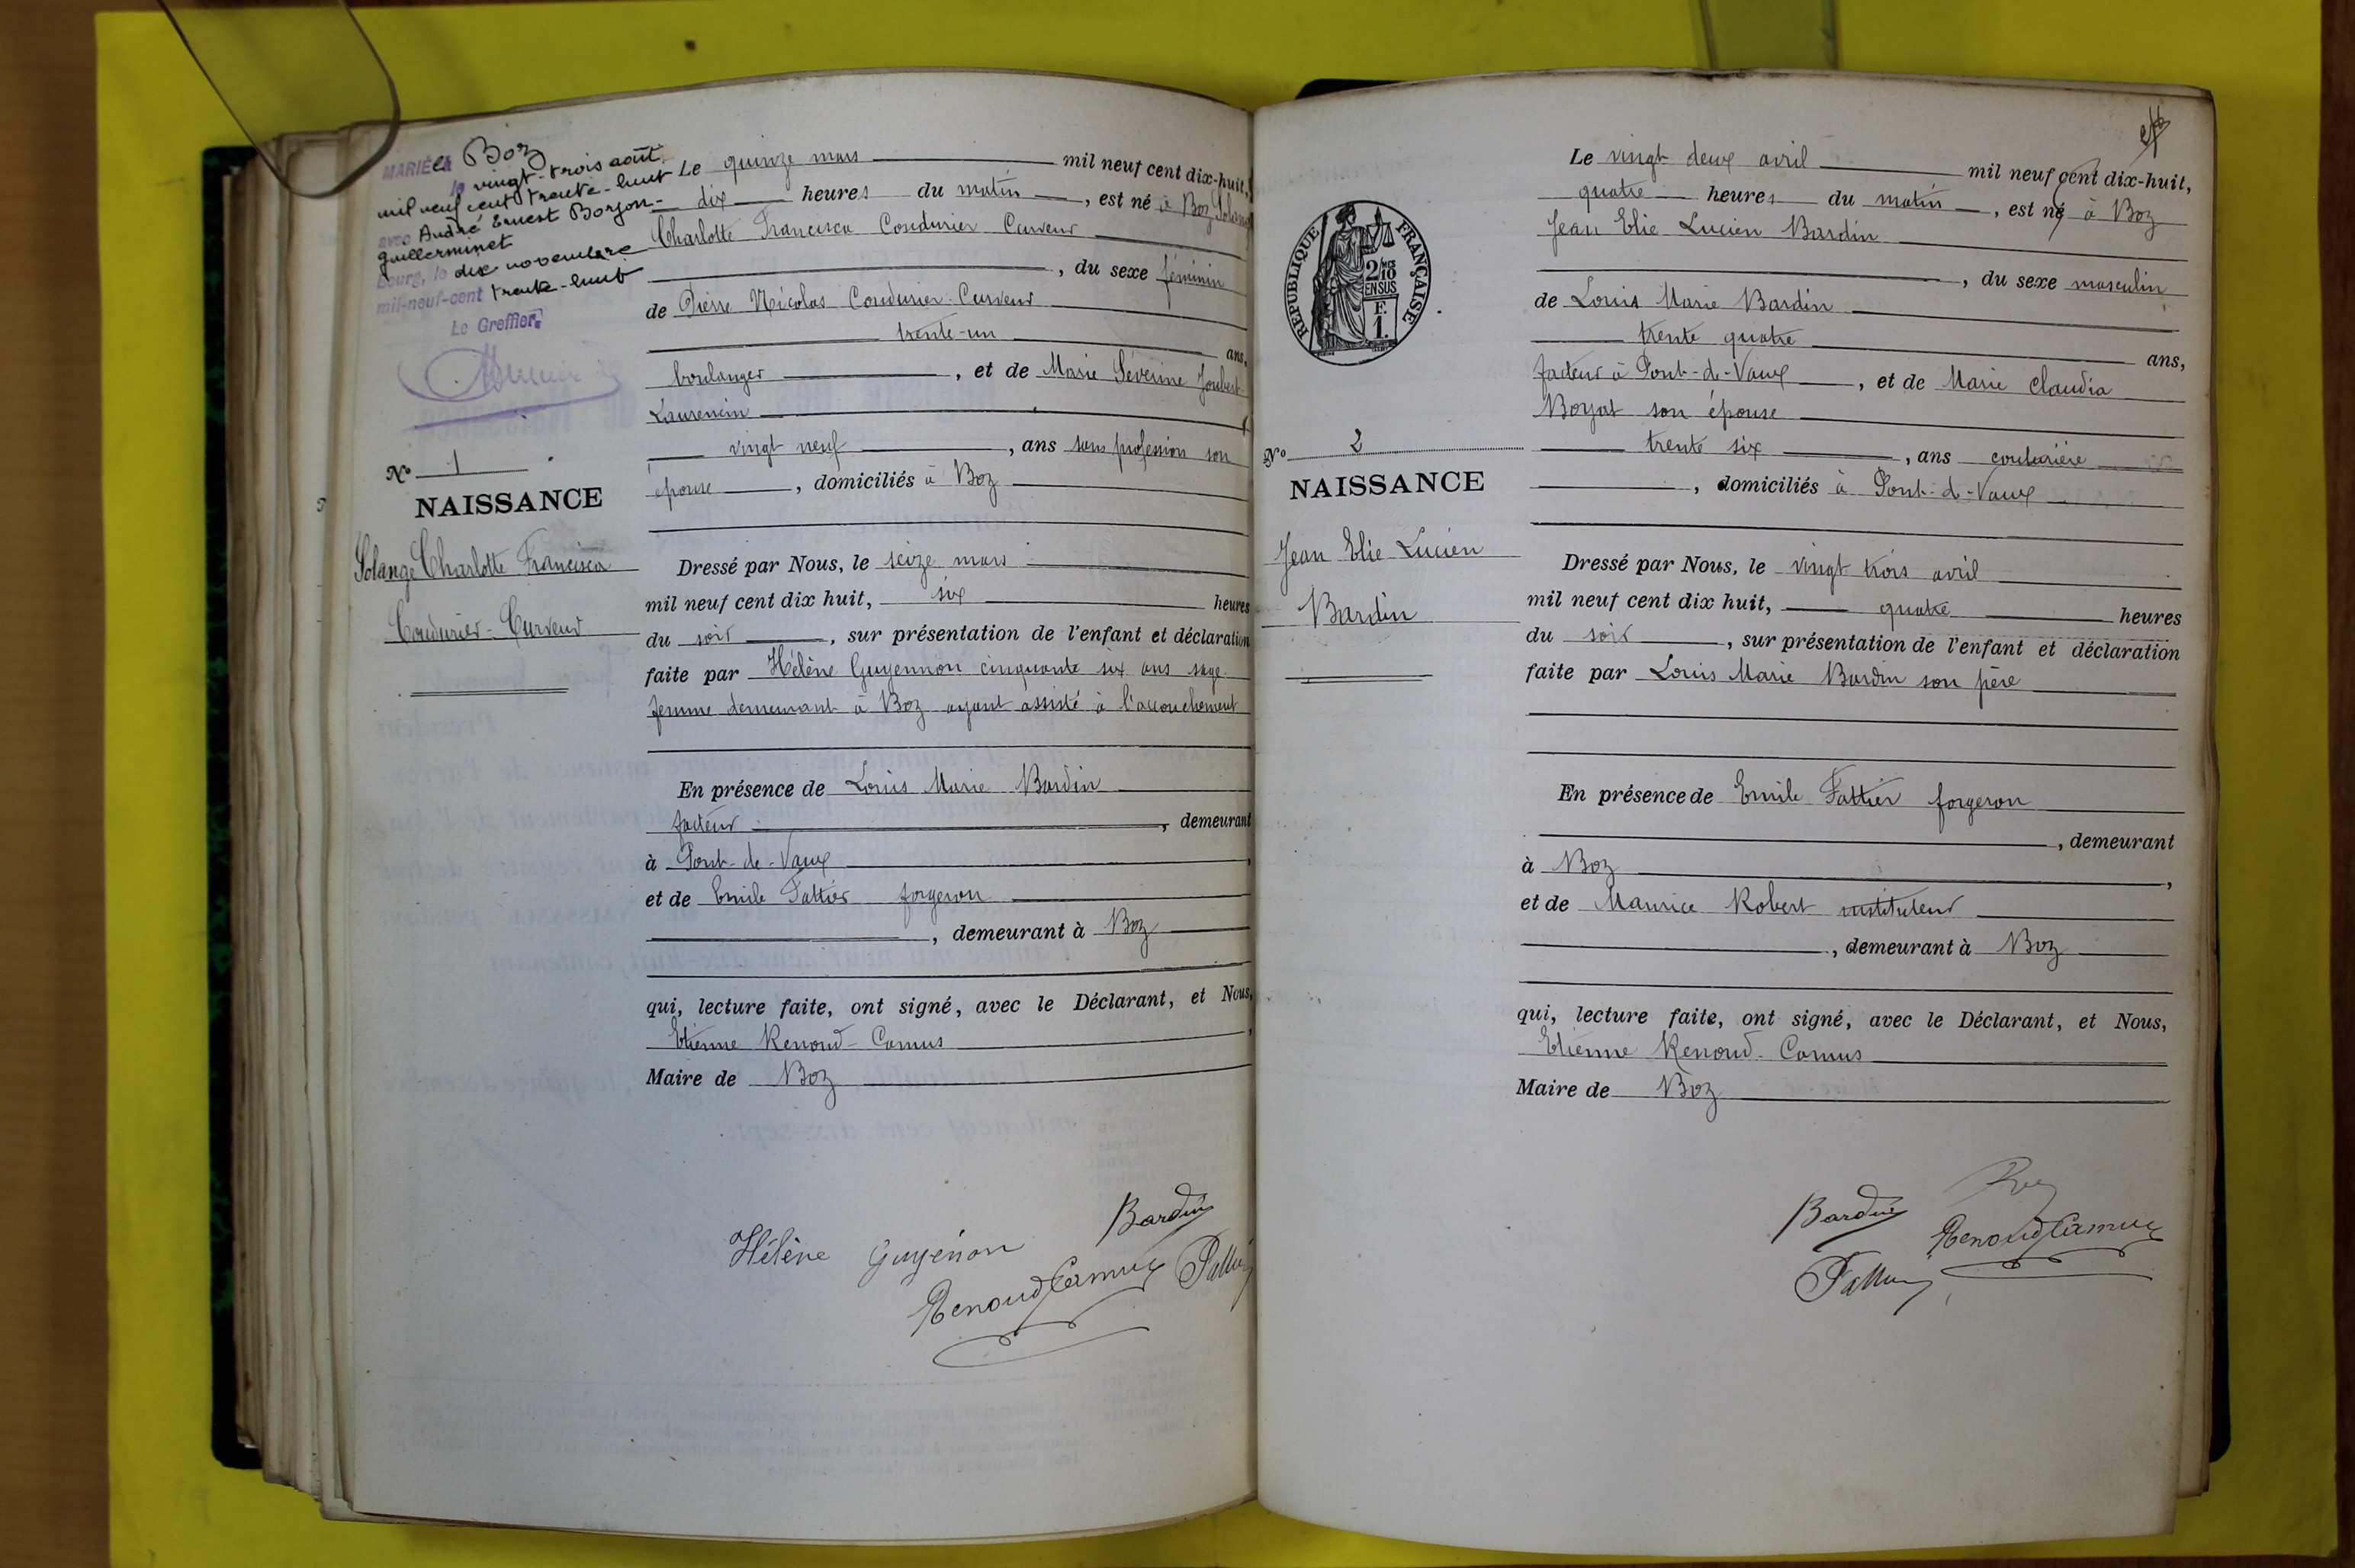 MARIÉE à Boz
le vingt-trois août
mil neuf cent trente-huit
avec André Ernest Borjon-
guillerminet
Bourg, le dix novembre
mil-neuf-cent trente-huit
Le Greffier,
N° 1
NAISSANCE
Solange Charlotte Francisca
Coudurier-Curveur
Le quinze mars mil neuf cent dix-huit,
dix heures du matin, est né à Boz Solange
Charlotte Francisca Coudurier Curveur
, du sexe féminin
de Pierre Nicolas Coudurier-Curveur
trente-un ans,
boulanger, et de Marie Séverine Joubert
Laurencin
vingt neuf, ans sans profession son
épouse, domiciliés à Boz
Dressé par Nous, le seize mars
mil neuf cent dix huit, six heures
du soir, sur présentation de l'enfant et déclaration
faite par Hélène Guyennon cinquante six ans sage-
femme demeurant à Boz ayant assisté à l'accouchement
En présence de Louis Marie Bardin
facteur, demeurant
à Pont-de-Vaux,
et de Emile Fattier forgeron
, demeurant à Boz
qui, lecture faite, ont signé, avec le Déclarant, et Nous,
Etienne Renoud-Camus,
Maire de Boz
Bardin
Hélène Guyénon
Renoud Camus Fattier
RÉPUBLIQUE FRANÇAISE
2/10
EN SUS
F.
1.
N° 2
NAISSANCE
Jean Elie Lucien
Bardin
Le vingt deux avril mil neuf cent dix-huit,
quatre heures du matin, est né à Boz
Jean Elie Lucien Bardin
, du sexe masculin
de Louis Marie Bardin
trente quatre ans,
facteur à Pont-de-Vaux, et de Marie Claudia
Boyat son épouse
trente six, ans couturière
, domiciliés à Pont-de-Vaux
Dressé par Nous, le vingt trois avril
mil neuf cent dix huit, quatre heures
du soir, sur présentation de l'enfant et déclaration
faite par Louis Marie Bardin son père
En présence de Emile Fattier forgeron
, demeurant
à Boz,
et de Maurice Robert instituteur
, demeurant à Boz
qui, lecture faite, ont signé, avec le Déclarant, et Nous,
Etienne Renoud-Camus
Maire de Boz
Bardin
Renoud Camus
Fattier